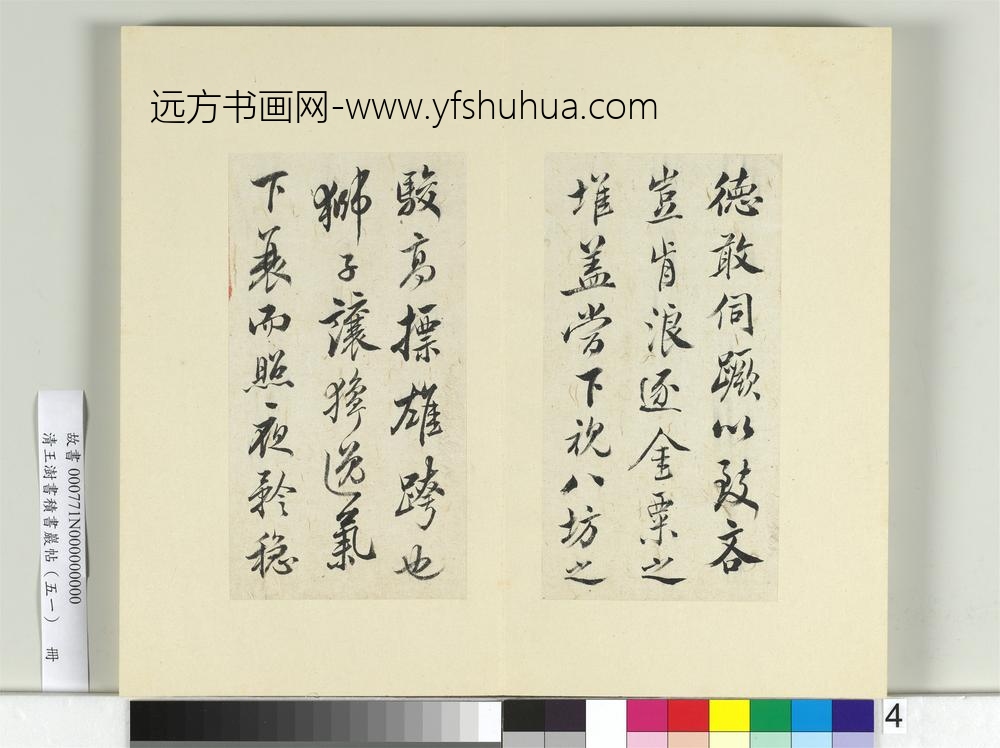 远方书画网-www.yfshuhua.com
德敢伺蹶以致吝
豈肯浪逐金粟之
堆盖當下視八坊之
駿高標雄跨也
獅子讓獰逸氣
下衰而照夜矜穩
故書 000771N000000000
清王澍書積書巖帖(五一) 冊
4